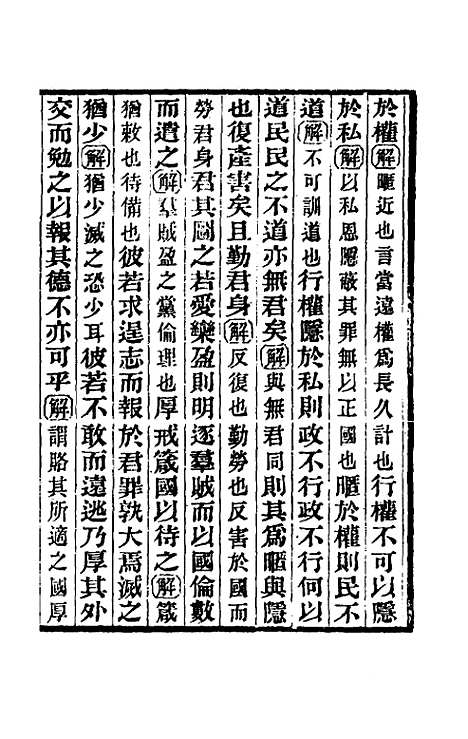 於權解暱近也言當遠權爲長久計也行權不可以隱
於私解以私恩隱蔽其罪無以正國也暱於權則民不
道解不可訓道也行權隱於私則政不行政不行何以
道民民之不道亦無君矣解與無君同則其爲暱與隱
也復產害矣且勤君身解反復也勤勞也反害於國而
勞君身君其圖之若愛欒盈則明逐羣賊而以國倫數
而遣之解羣賊盈之黨倫理也厚戒箴國以待之解箴
猶敕也待備也彼若求逞志而報於君罪孰大焉滅之
猶少解猶少滅之恐少耳彼若不敢而遠逃乃厚其外
交而勉之以報其德不亦可乎解謂賂其所適之國厚